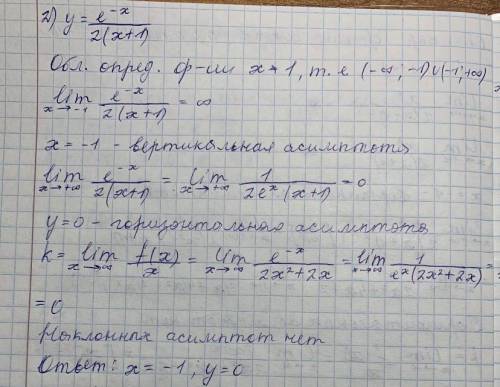 2) y = e^{-x} / 2(x+1)
Обл. опред. ф-ии x ≠ 1, т. е. (-∞; -1) ∪ (-1; +∞)
lim_{x→-1} e^{-x} / 2(x+1) = ∞
x = -1 - вертикальная асимптота
lim_{x→+∞} e^{-x} / 2(x+1) = lim_{x→+∞} 1 / 2e^x (x+1) = 0
y = 0 - горизонтальная асимптота
k = lim_{x→∞} f(x) / x = lim_{x→∞} e^{-x} / 2x²+2x = lim_{x→∞} 1 / e^x (2x²+2x) =
= 0
Наклонных асимптот нет
Ответ: x = -1; y = 0